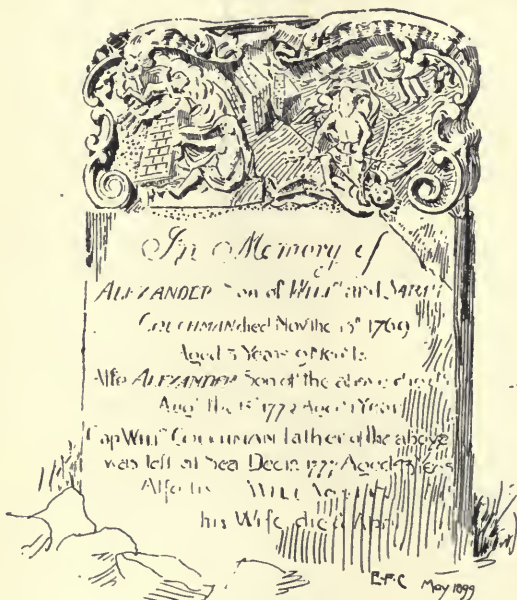 In Memory of
ALEXANDER Son of WILLm and SARAH
COUCHMAN died Nov the 1769
Aged 3 Years
Alſo ALEXANDER Son of the above died
Augt the 15th 1772 Aged 1 Year
Cap WILLm COUCHMAN father of the above
was loſt at Sea Dec 12 1777 Aged Years
Alſo WILL
his Wife died Apr
E.F.C May 1899